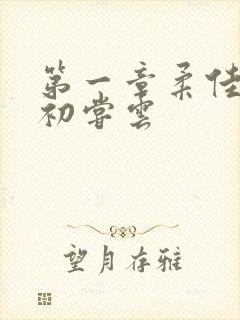 第一章柔佳
初尝云
望月存雅